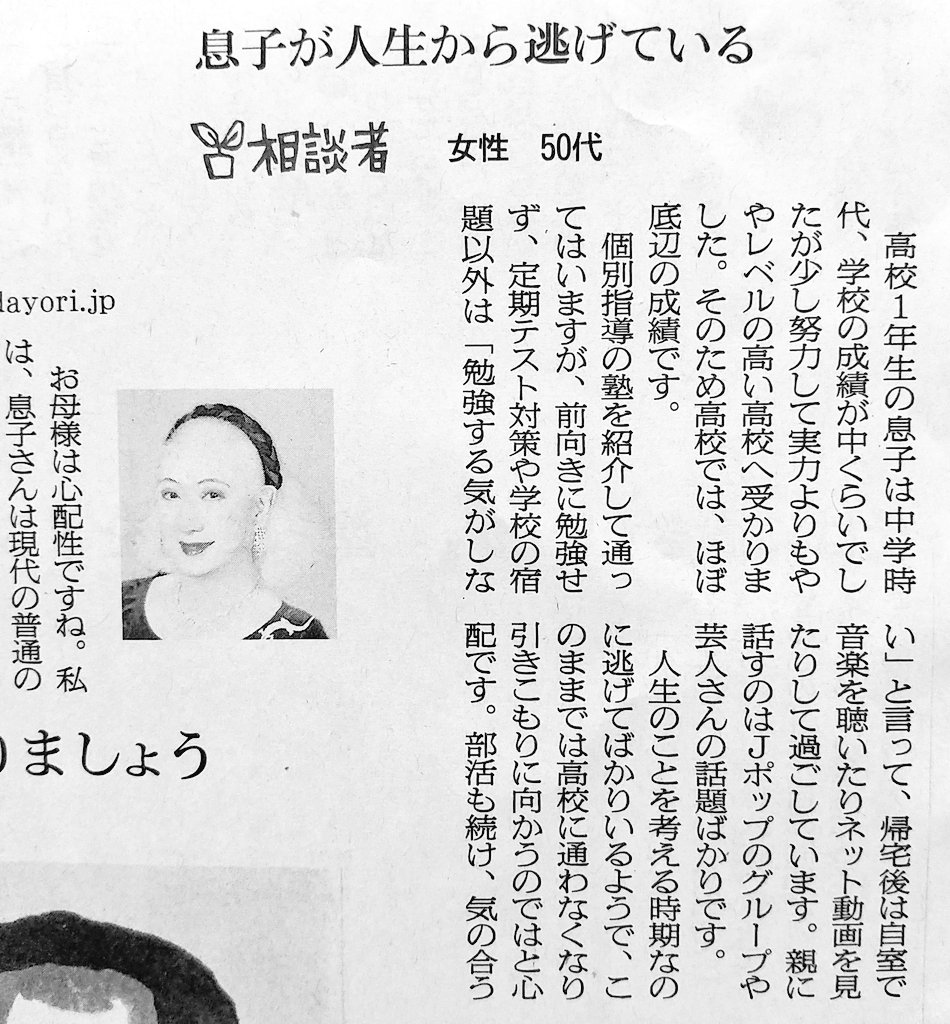 息子が人生から逃げている
相談者
女性 50代
高校1年生の息子は中学時
代、学校の成績が中くらいでし
たが少し努力して実力よりもや
やレベルの高い高校へ受かりま
した。そのため高校では、ほぼ
底辺の成績です。
個別指導の塾を紹介して通っ
てはいますが、前向きに勉強せ
ず、定期テスト対策や学校の宿
題以外は「勉強する気がしな
い」と言って、帰宅後は自室で
音楽を聴いたりネット動画を見
たりして過ごしています。親に
話すのはJポップのグループや
芸人さんの話題ばかりです。
人生のことを考える時期なの
に逃げてばかりいるようで、こ
のままでは高校に通わなくなり
引きこもりに向かうのではと心
配です。部活も続け、気の合う
dayori.jp
お母様は心配性ですね。私
は、息子さんは現代の普通の
りましょう